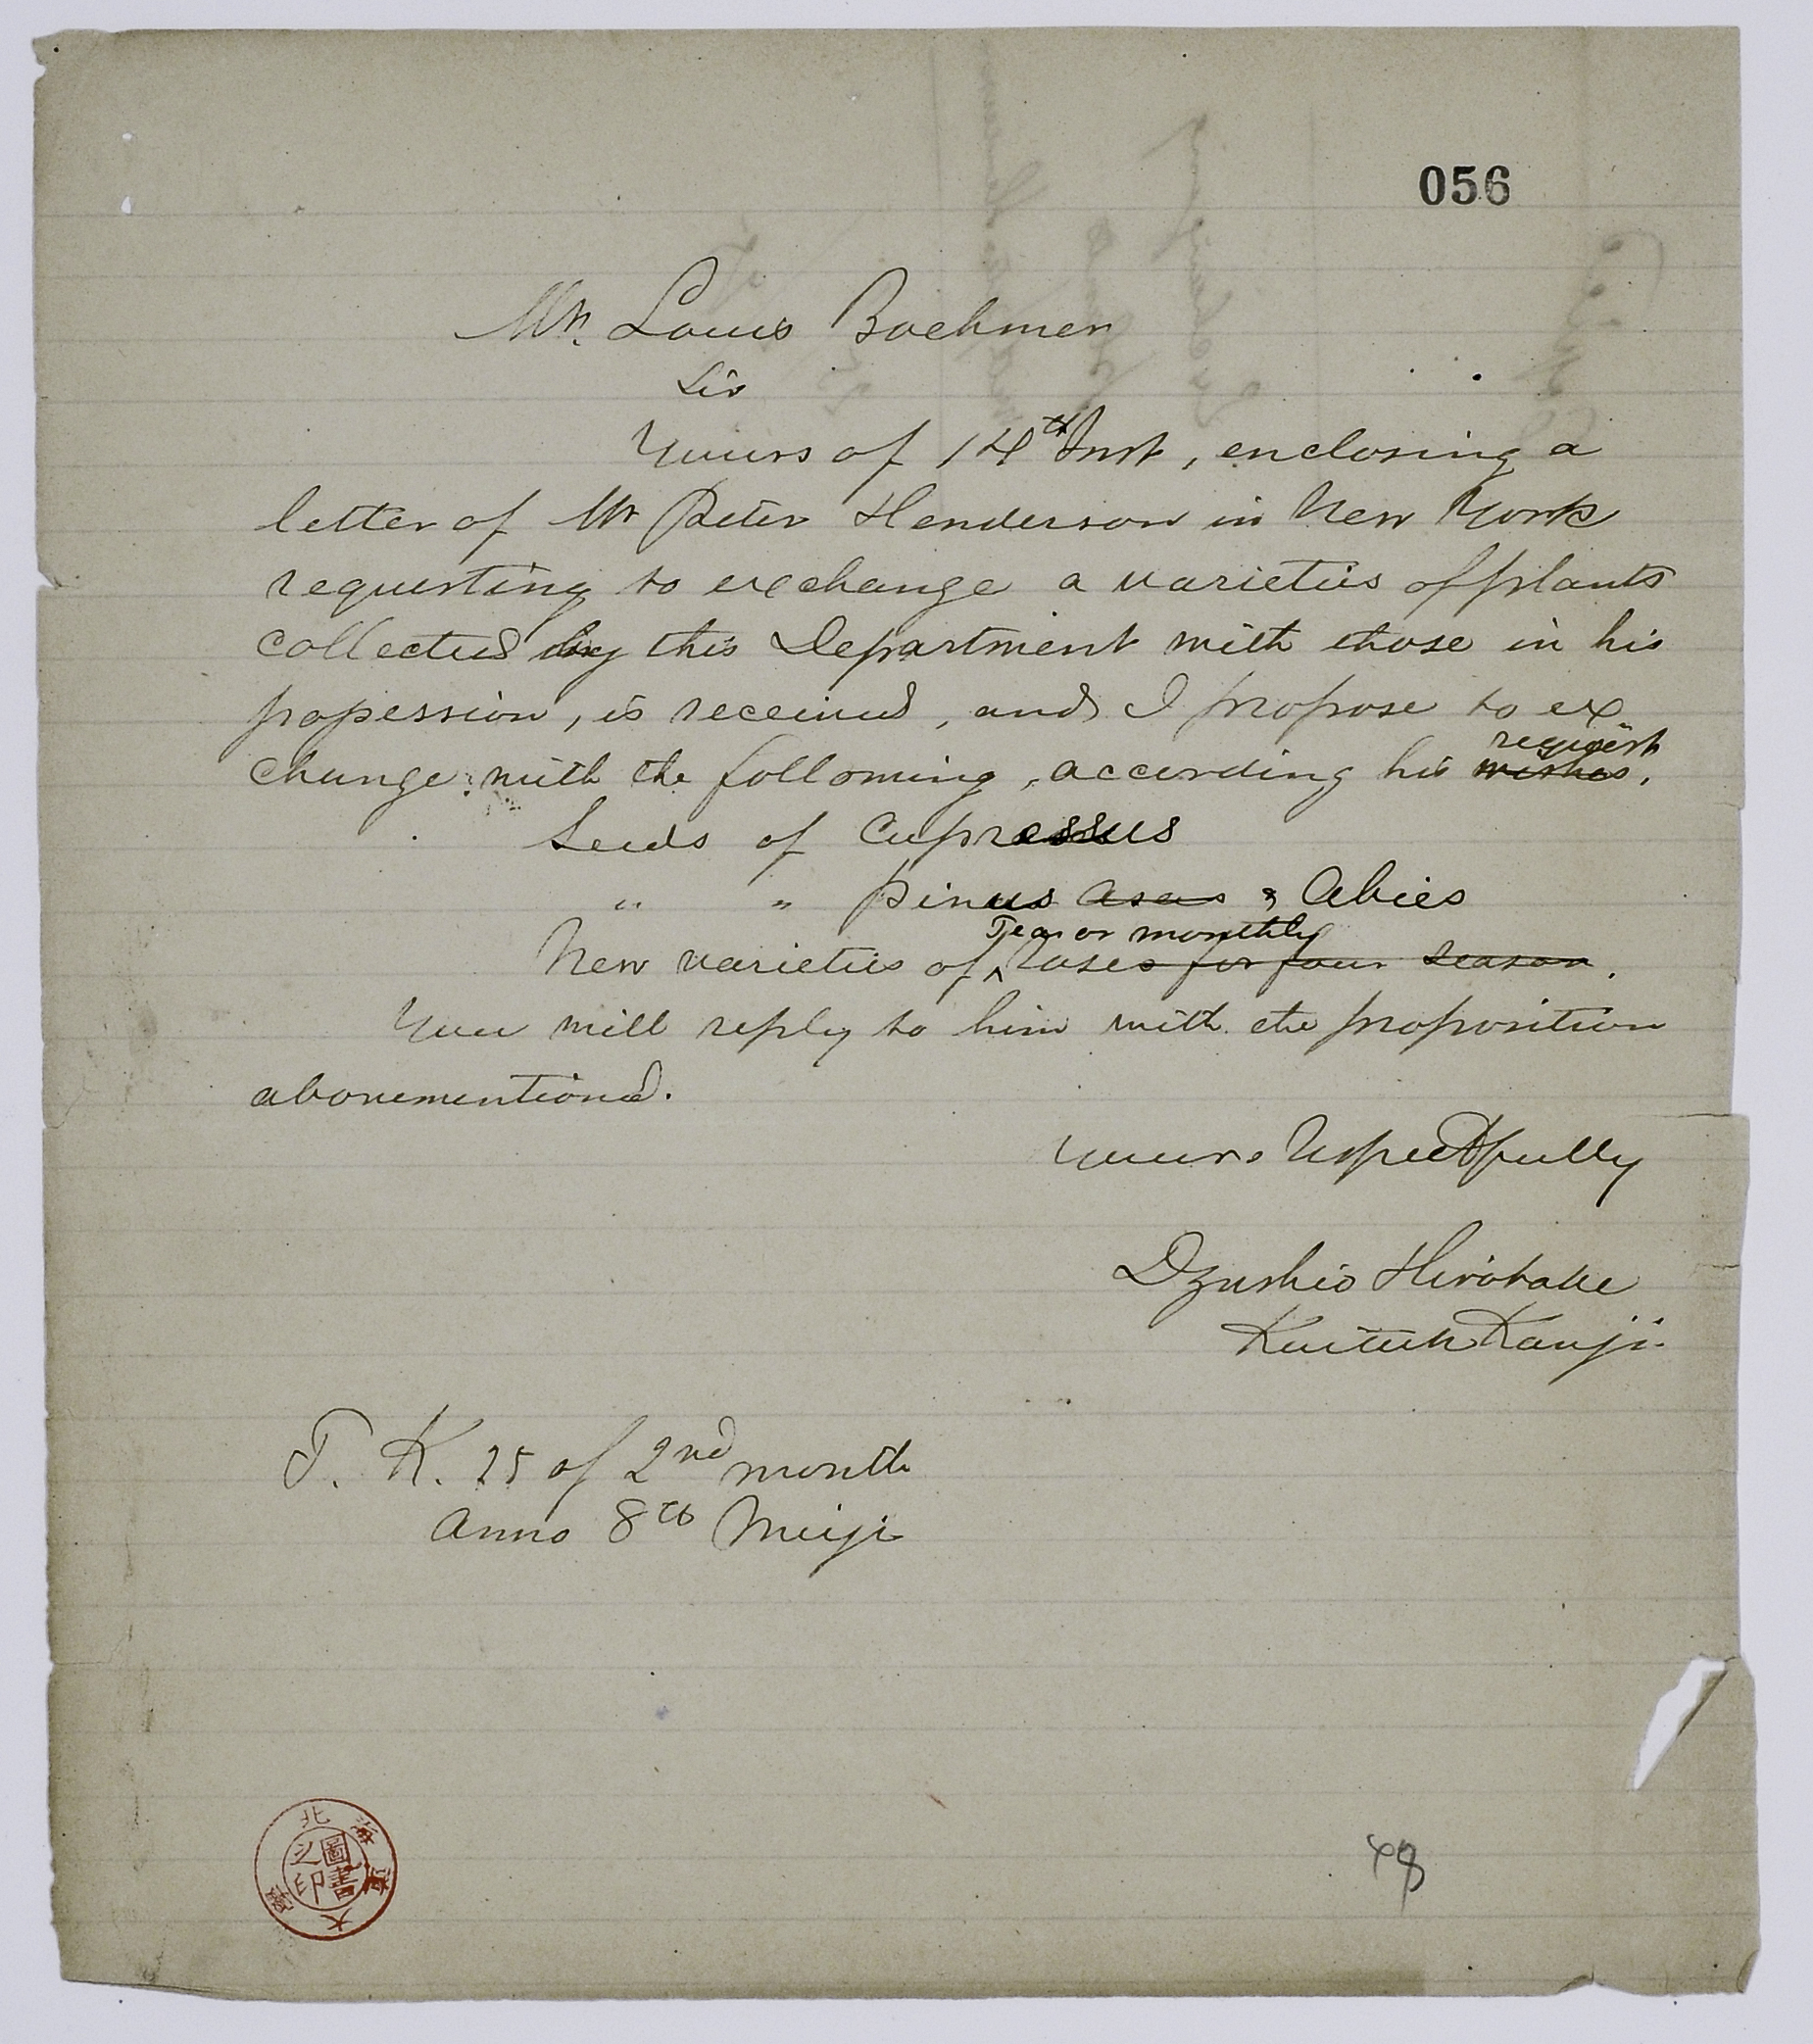 056
Mr. Louis Boehmer
Sir
Yours of 14th Inst, enclosing a
letter of Mr Peter Henderson in New York
requesting to exchange a varieties of plants
collected by this Department with those in his
propession, is received, and I propose to ex
change with the following, according his wishes request.
Seeds of Cupressus
" " Pinus & Abies
New varieties of Tea or monthly Roses for four season.
You will reply to him with the proposition
abovementioned.
Yours respectfully
Dzushio Hirotake
Kaitaku Kanji.
T. K. 25 of 2nd month
Anno 8th Meiji
北海道大學
圖書之印
48